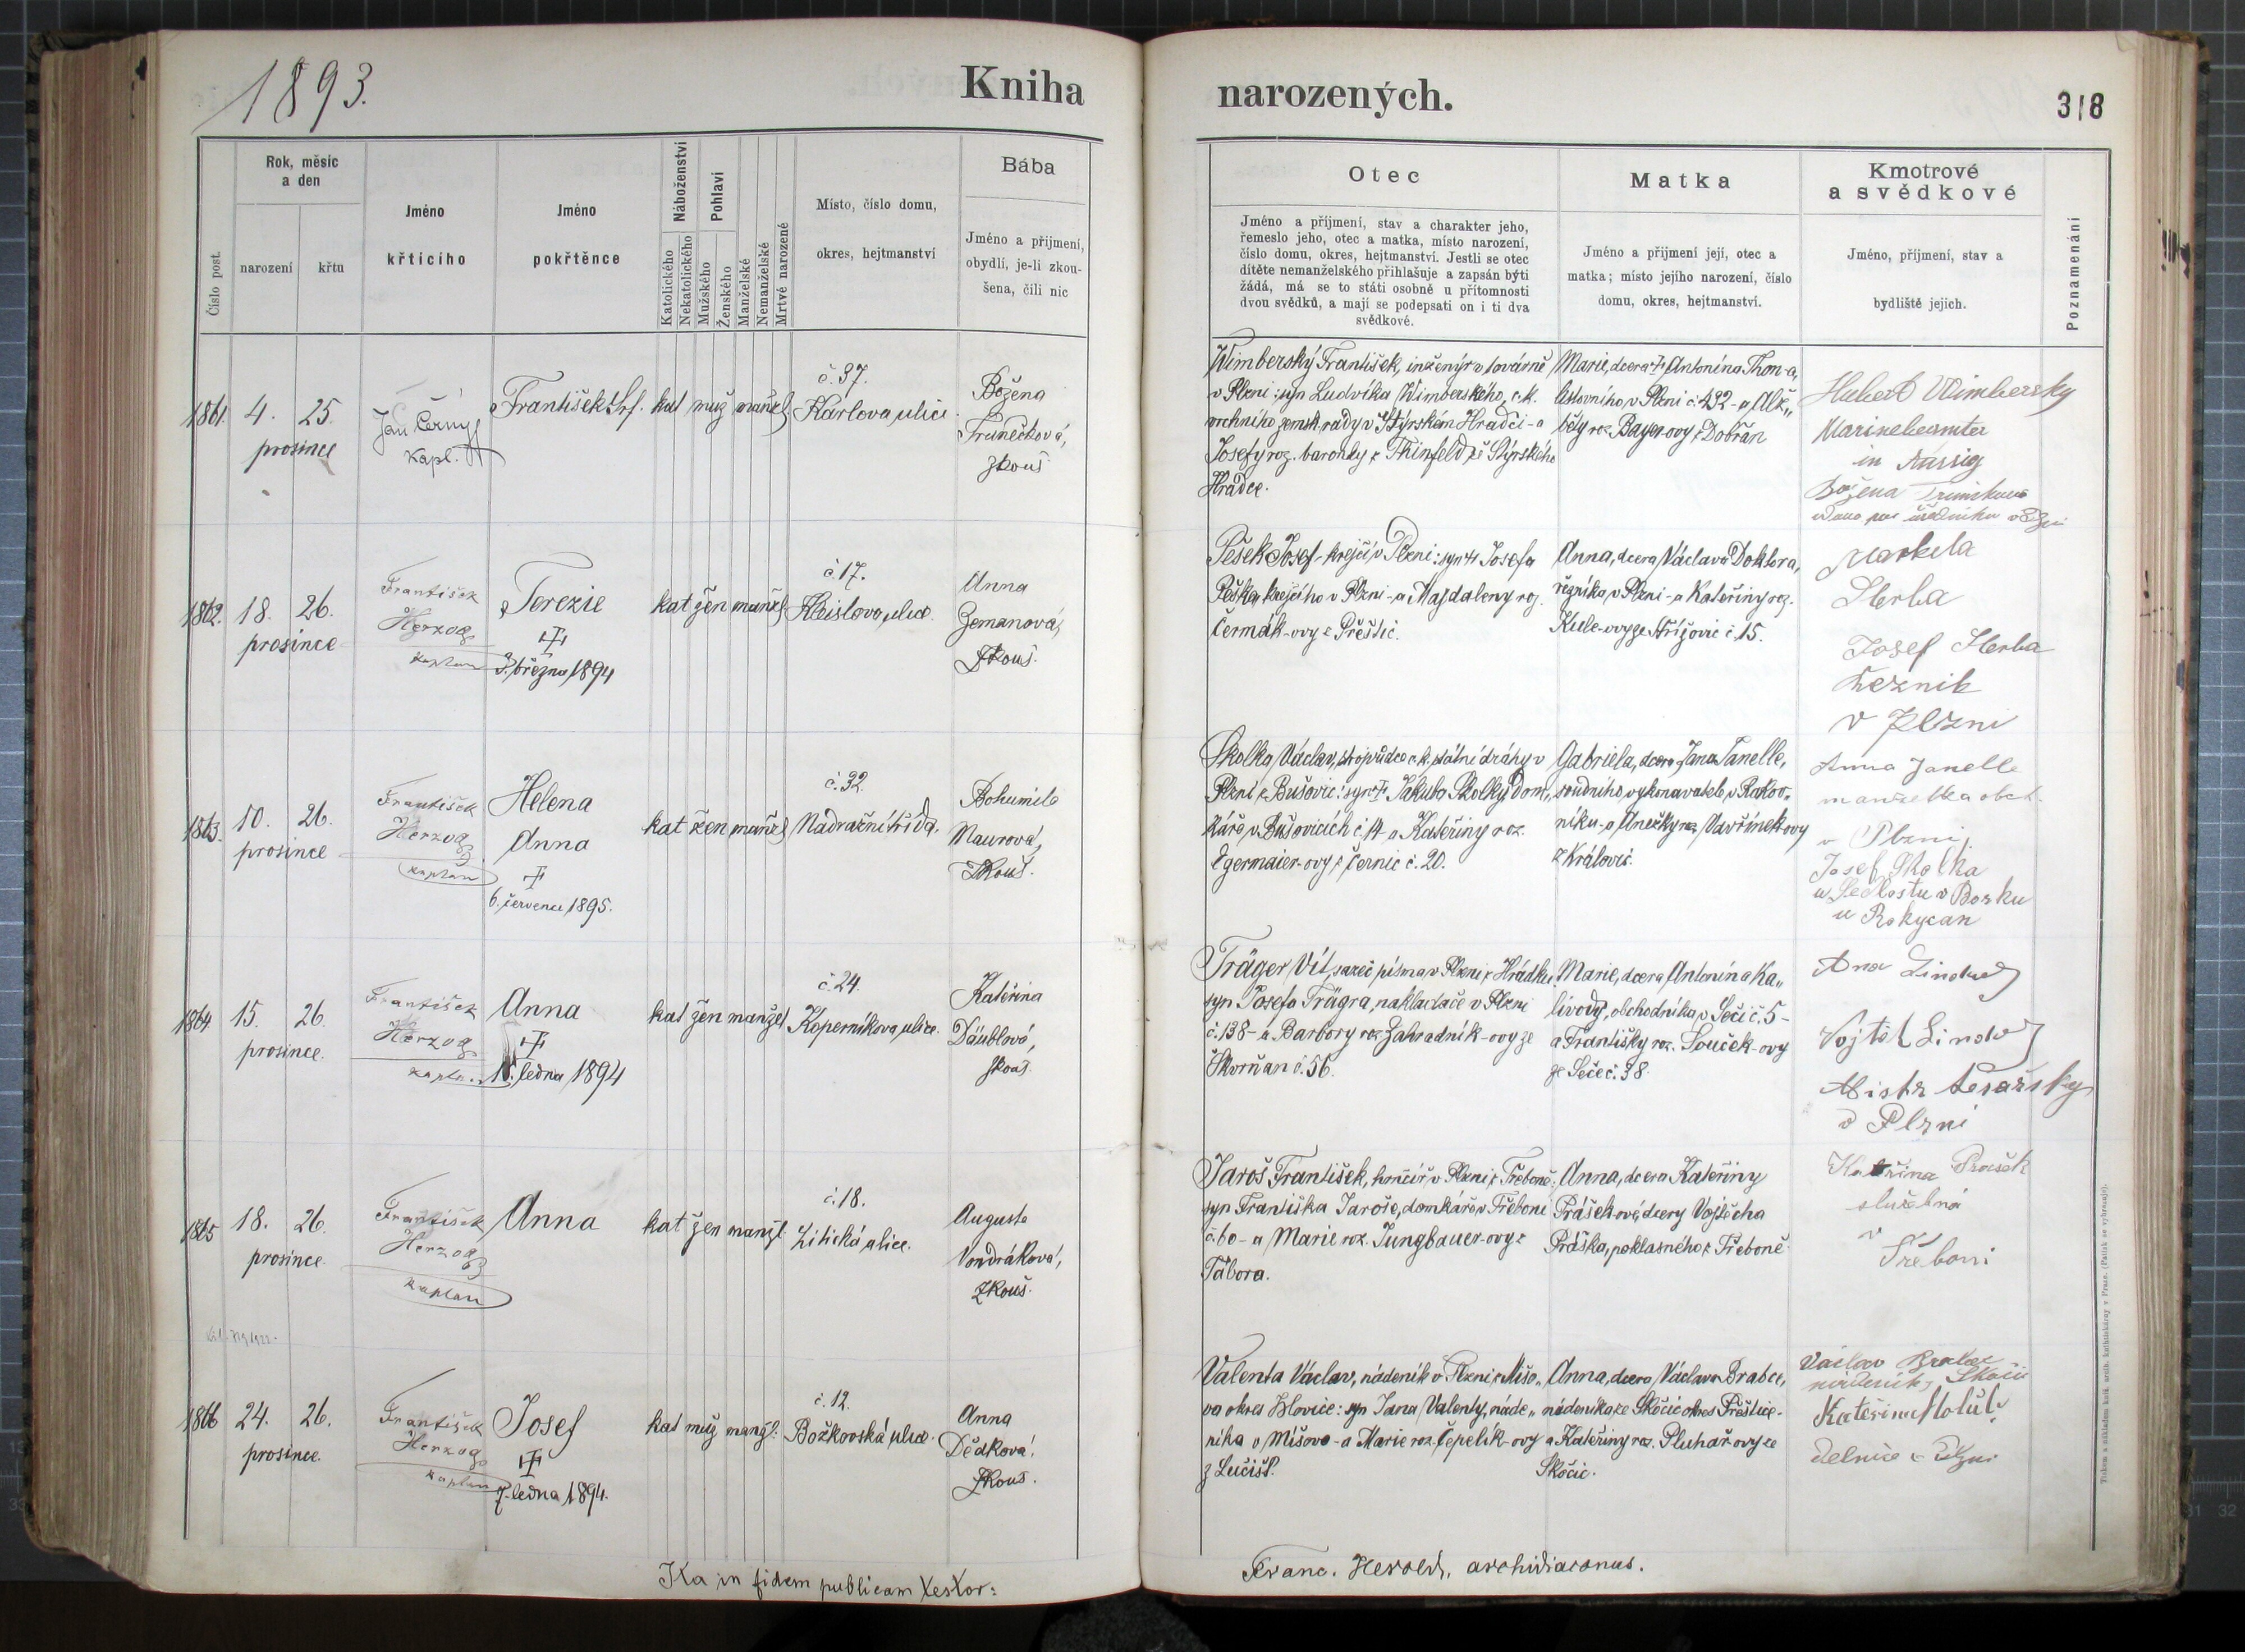 1893.
Kniha
narozených.
318
Číslo post.
Rok, měsíc
a den
narození
křtu
Jméno
křticího
Jméno
pokřtěnce
Náboženství
Katolického
Nekatolického
Pohlaví
Mužského
Ženského
Manželské
Nemanželské
Mrtvé narozené
Místo, číslo domu,
okres, hejtmanství
Bába
Jméno a příjmení,
obydlí, je-li zkou-
šena, čili nic
Otec
Jméno a příjmení, stav a charakter jeho,
řemeslo jeho, otec a matka, místo narození,
číslo domu, okres, hejtmanství. Jestli se otec
dítěte nemanželského přihlašuje a zapsán býti
žádá, má se to státi osobně u přítomnosti
dvou svědků, a mají se podepsati on i ti dva
svědkové.
Matka
Jméno a příjmení její, otec a
matka; místo jejího narození, číslo
domu, okres, hejtmanství.
Kmotrové
a svědkové
Jméno, příjmení, stav a
bydliště jejich.
Poznamenání
1861.
4. 25.
prosince
Jan Černý
kapl.
František
kat muž manžel
č. 37.
Karlova ulice.
Božena
Trunečková,
zkouš.
Wimberský František, inženýr v továrně
v Plzni: syn Ludvíka Wimberského, c.k.
vrchního zemsk. rady v Štýrském Hradci - a
Josefy roz. baronky z Thinfeld ze Štýrského
Hradce.
Marie, dcera † Antonína Thon-a,
listovního v Plzni č. 492 - a Alž„
běty roz. Bayer-ovy z Dobřan
Hubert Wimbersky
Marinebeamter
in Aussig
Božena
1862.
18. 26.
prosince
František
Herzog
kaplan
Terezie
†
3. března 1894
kat žen manžel
č. 17.
Kleislova ulice.
Anna
Zemanová,
Zkouš.
Pešek Josef, krejčí v Plzni: syn † Josefa
Peška, krejčího v Plzni - a Majdaleny roz.
Čermák-ovy z Přeštic.
Anna, dcera Václava Doktora,
řezníka v Plzni - a Kateřiny roz.
Kule-ovy ze Střížovic č. 15.
Markéta
Sterba
Josef Sterba
řezník
v Plzni
1863.
10. 26.
prosince
František
Herzog
kaplan
Helena
Anna
†
6. července 1895.
kat žen manžel
č. 32.
Nádražní třída.
Bohumila
Maurová,
Zkouš.
Školka Václav, strojvůdce c.k. státní dráhy v
Plzni z Bušovic: syn † Jakuba Školky, Dom„
káře v Bušovicích č. 14 - a Kateřiny roz.
Egermaier-ovy z Černic č. 20.
Gabriela, dcera Jana Janelle,
soudního vykonavatele v Rakov„
níku - a Anežky roz. Vavřínek-ovy
z Královic.
Anna Janelle
manželka obch.
v Plzni
Josef Školka
v Borku
u Rokycan
1864
15. 26.
prosince.
František
Herzog
kapl.
Anna
†
ledna 1894
kat žen manžel
č. 24.
Koperníkova ulice.
Kateřina
Däublová,
zkouš.
Träger Vít, sazeč písma v Plzni z Hrádku,
syn Josefa Trägra, nakladače v Plzni
č. 138 - a Barbory roz. Zahradník-ovy ze
Škorňan č. 56.
Marie, dcera Antonína Ka„
livody, obchodníka v Seči č. 5 -
a Františky roz. Souček-ovy
ze Seče č. 38.
Vojtěch
Mistr tesařský
v Plzni
1865
18. 26.
prosince.
František
Herzog
kaplan
Anna
kat žen manžel.
č. 18.
Litická ulice.
Augusta
Vondráková,
Zkouš.
Jaroš František, hrnčíř v Plzni z Třeboně:
syn Františka Jaroše, domkáře v Třeboni
č. 60 - a Marie roz. Jungbauer-ovy z
Tábora.
Anna, dcera Kateřiny
Prášek-ové, dcery Vojtěcha
Práška, poklasného z Třeboně.
Kateřina Prašek
služebná
v
Třeboni
1866
24. 26.
prosince.
František
Herzog
kaplan
Josef
†
7. ledna 1894.
kat muž manžel.
č. 12.
Božkovská ulice.
Anna
Dědková,
Zkouš.
Valenta Václav, nádeník v Plzni z Mišo„
va okres Blovice: syn Jana Valenty, náde„
níka v Míšově - a Marie roz. Čepelík-ovy
z Lučišť.
Anna, dcera Václava Brabce,
nádeníka ze Skočic okres Přeštice -
a Kateřiny roz. Pluhař-ovy ze
Skočic.
Václav Brabec
nádeník, Skočic
Kateřina
Ita in fidem publicam testor:
Franc. Herold, archidiaconus.